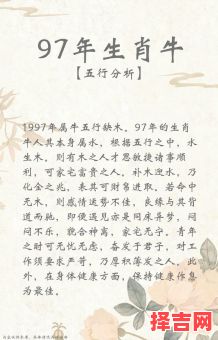 97年生肖牛
【五行分析】
1997年属牛五行缺木。97年的生肖
牛人其本身属水，根据五行之中，水
生木。则有木之人才思敏捷诸事顺
利，可家宅富贵之人。补木泄水，乃
化金之兆，秉其可财帛进取。若命中
无木，则感情运势不佳，良缘与其背
道而驰，即便遇见亦是同床异梦，闷
闷不乐，貌合神离，家宅无宁。青年
之时可无忧无虑，奋发于君子，对工
作须要求严苛，乃厚积薄发之人。此
外，在身体健康方面，保持健康作息
为最佳。
择吉网